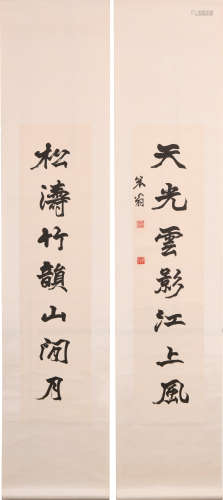 天光雲影江上風
松濤竹韻山間月